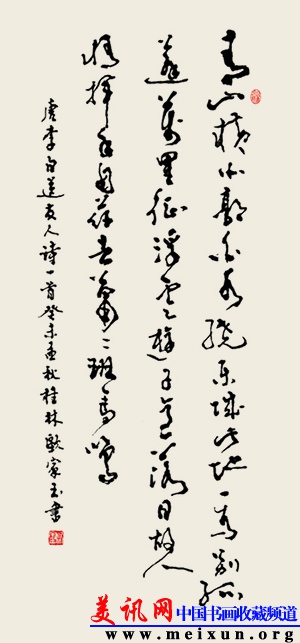 青山横北郭白水绕东城此地一为别孤
蓬万里征浮云游子意落日故人
情挥手自兹去萧〻班马鸣
唐李白送友人诗一首癸未孟秋桂林欧家玉书
美讯网 中国书画收藏频道
www.meixun.org